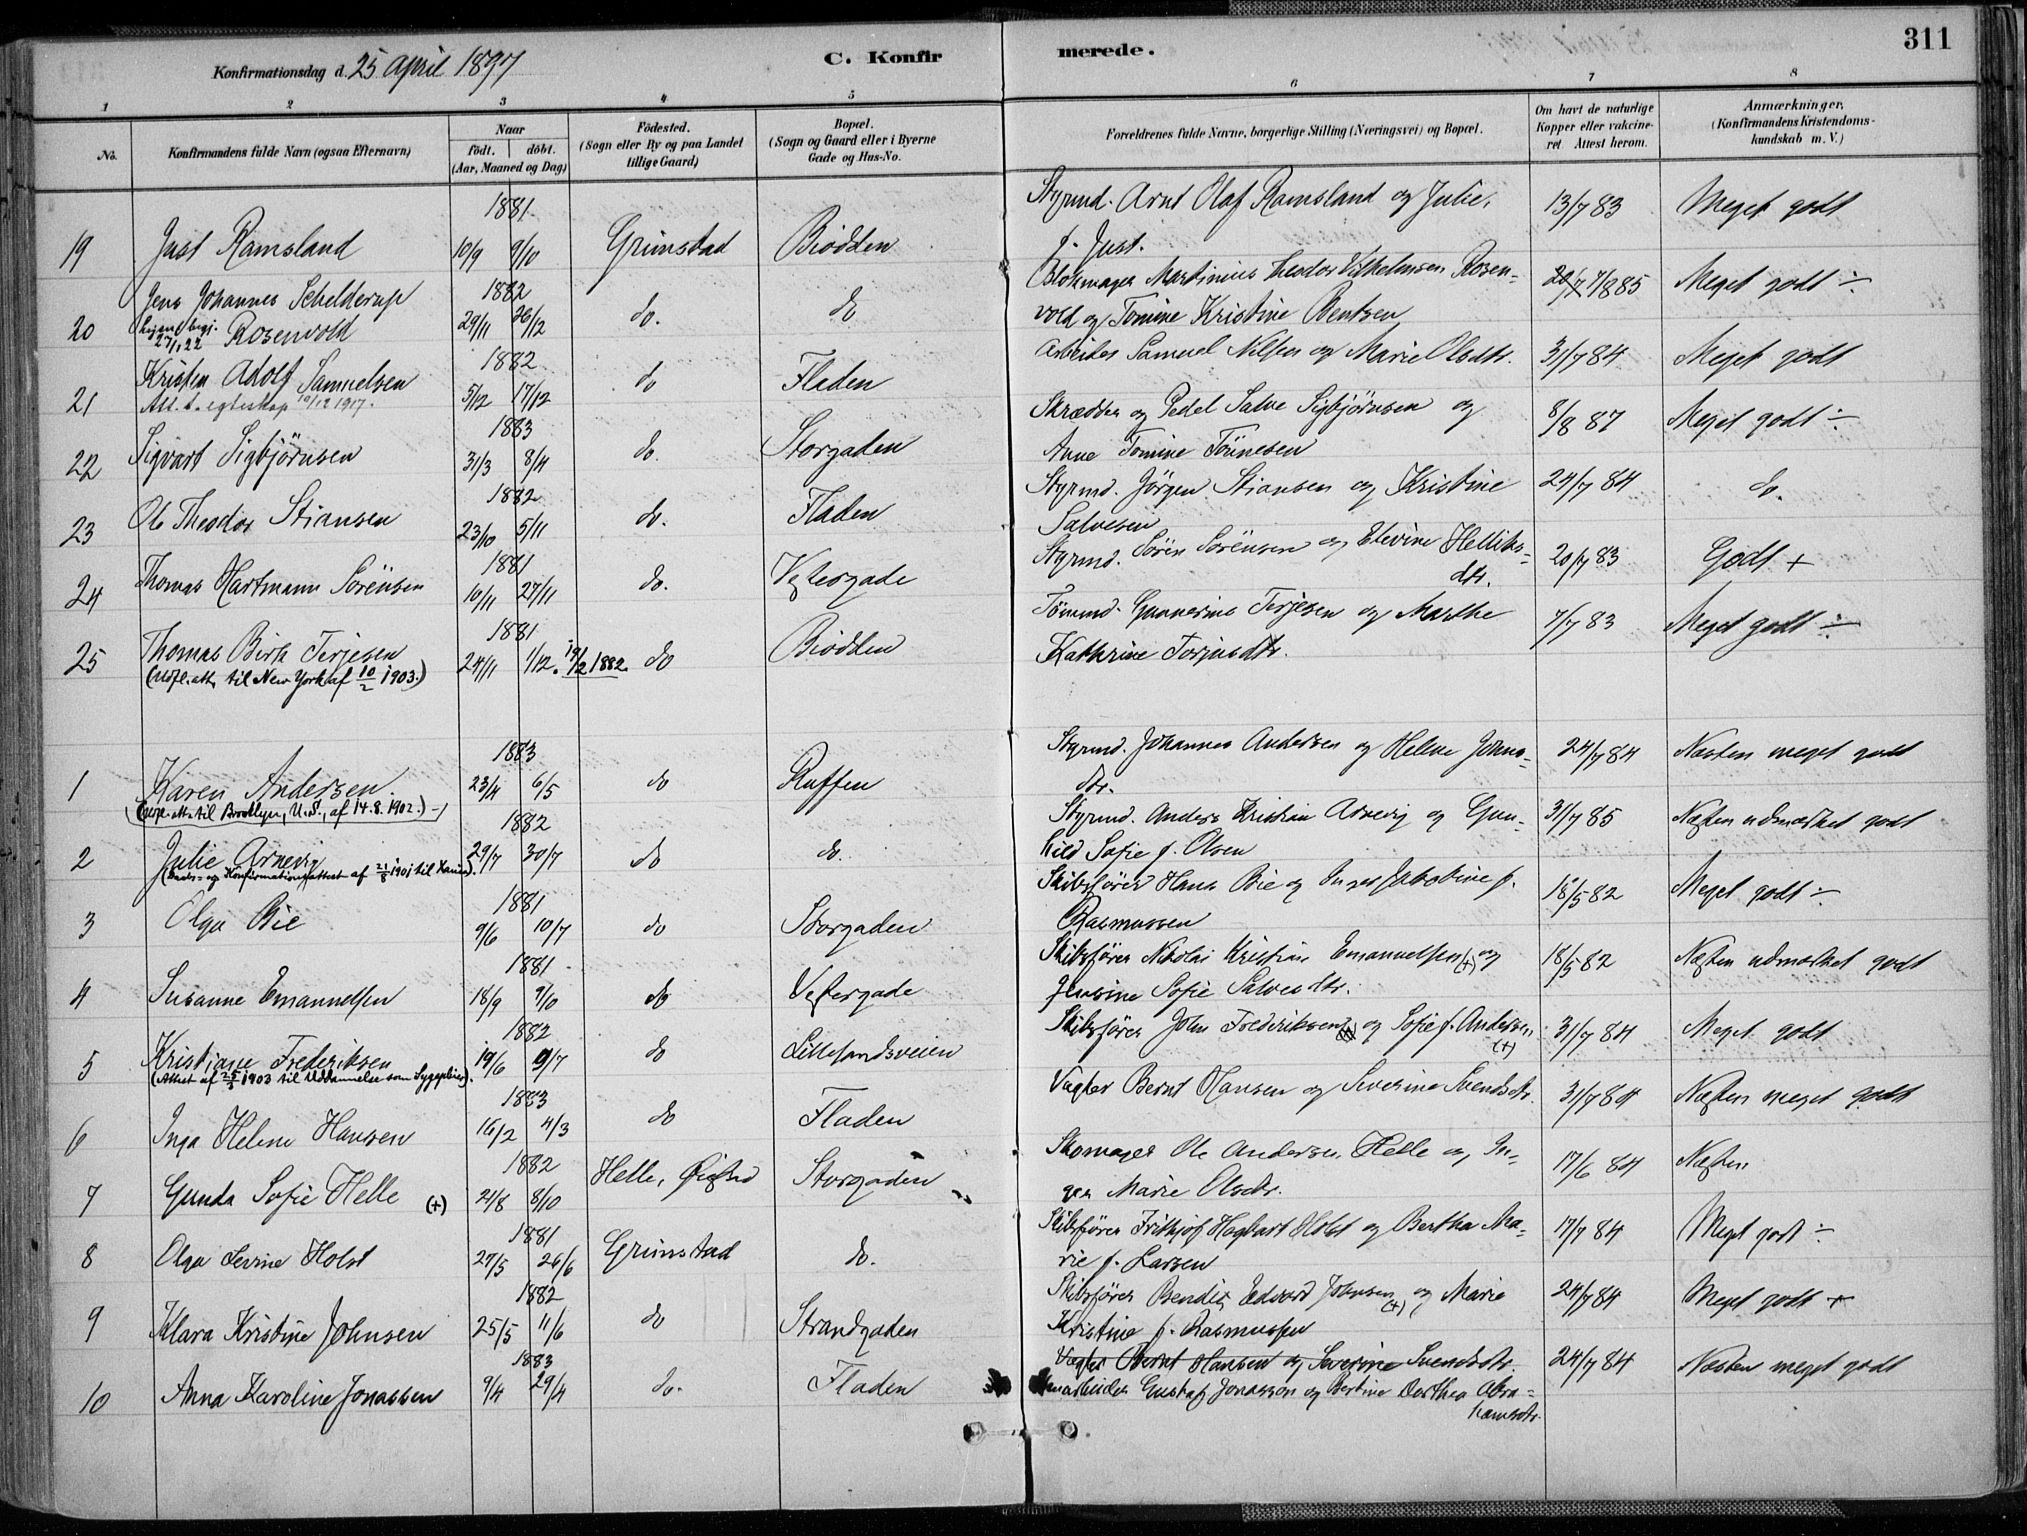 311
Konfirmationsdag d. 25 april 1897
C. Konfirmerede.
1 2 3 4 5 6 7 8
No.
Konfirmandens fulde Navn (ogsaa Efternavn)
Naar
födt. döbt.
(Aar, Maaned og Dag)
Födested.
(Sogn eller By og paa Landet
tillige Gaard)
Bopæl.
(Sogn og Gaard eller i Byerne
Gade og Hus-No.
Forældrenes fulde Navne, borgerlige Stilling (Næringsvei) og Bopæl.
Om havt de naturlige
Kopper eller vakcine-
ret. Attest herom.
Anmærkninger.
(Konfirmandens Kristendoms-
kundskab m. V.)
1881 Styrmd. Arnt Olaf Ramsland og Julie,
19 Just Ramsland 10/9 9/10 Grimstad Biodden f. Just. 13/7 83 Meget godt
Jens Johannes Schelderup 1882 Blokmager Martinius Theodor Vilhelmsen Rosen-
20 27/1 22 Rosenvold 29/11 26/12 do. do vold og Tomine Kristine Bentsen 7/8 85 Meget godt ÷
Kristen Adolf Samuelsen 1882 Arbeider Samuel Nilsen og Marie Olsdtr. 31/7 84 Meget godt
21 Att. t. egteskap 10/12 1917. 5/12 17/12 do Fladen
1883 Skrædder og Pedel Salve Sigbjørnsen og 8/8 87 Meget godt ÷
22 Sigvart Sigbjørnsen 31/3 8/4 do. Storgaden Anne Tomine Tönnesen
1882 Styrmd. Jörgen Stiansen og Kristine 24/7 84 do.
23 Ole Theodor Stiansen 23/10 5/11 do. Fladen Salvesen
1881 Styrmd. Sören Sörensen og Elevine Helliks-
24 Thomas Hartmann Sörensen 10/11 27/11 do. Vestergade dtr. 20/7 83 Godt +
1881 Tömmd. Gunnerius Terjesen og Marthe 7/7 83 Meget godt ÷
25 Thomas Birk Terjesen 24/11 1/12. 19/2 1882 do Biodden Kathrine Torjusdtr.
(Udfl.att. til New York af 10/2 1903.)
1883 Styrmd. Johannes Andersen og Helene Johns- 24/7 84 Næsten meget godt
1 Karen Andersen 23/4 6/5 do Ruffen dtr.
(Udfl.att. til Brooklyn, U.S., af 14.8.1902.)
1882 Styrmd. Anders Kristian Arnevig og Gun- 31/7 85 Næsten udmærket godt
2 Julie Arnevig 29/7 30/7 do do. hild Sofie f. Olsen
(Daabs- og Konfirmationsattest af 21/8 1901 til
1881 Skibsfører Hans Bie og Inger Jakobine f. 18/5 82 Meget godt ÷
3 Olga Bie 9/6 10/7 do Storgaden Rasmussen
1881 Skibsfører Nikolai Kristian Emanuelsen (+) og 18/5 82 Næsten udmærket godt
4 Susanne Emanuelsen 18/9 9/10 do Vestergade Jensine Sofie Salvesdtr.
1882 Skibsfører John Frederiksen og Sofie f. Andersen (+) 31/7 84 Meget godt
5 Kristiane Frederiksen 19/6 9/7 do Lillesandsveien
(Attest af 1903 til Uddannelse som Sygepleier).
1883 Vægter Bernt Hansen og Severine Svendsdtr. 31/7 84 Næsten meget godt
6 Inga Helene Hansen 16/2 4/3 do Fladen
1882 Skomager Ole Andersen Helle og In- 17/6 84 Næsten
7 Gunda Sofie Helle (+) 21/8 8/10 Helle, Øiestad Storgaden ger Marie Olsdtr.
1881 Skibsfører Frithjof Hagbart Holst og Bertha Ma- 17/7 84 Meget godt ÷
8 Olga Sevine Holst 27/5 26/6 Grimstad do. rie f. Larsen
1882 Skibsfører Bendix Edvard Johnsen (+) og Marie 24/7 84 Meget godt +
9 Klara Kristine Johnsen 25/5 11/6 do Strandgaden Kristine f. Rasmussen
1883 Vægter Bernt Hansen og Severine Svendsdtr. 24/7 84 Næsten meget godt
10 Anna Karoline Jonassen 9/4 29/4 do. Fladen Gustaf Jonasson og Bertine Dorthea Abra-
hamsdtr.